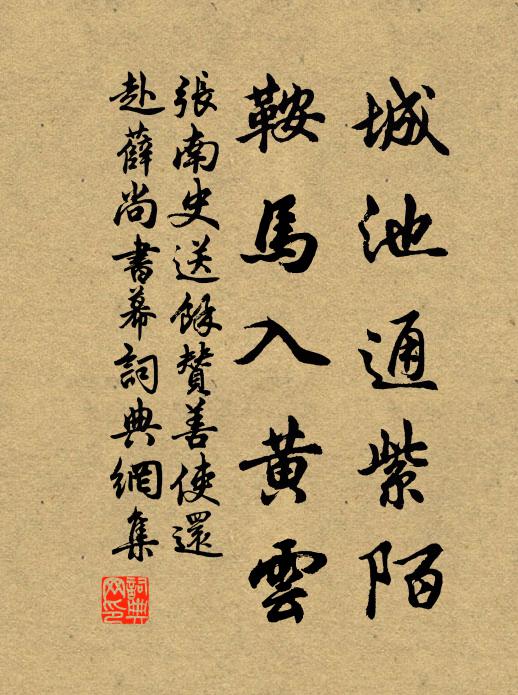 城池通紫陌
鞍馬入黃雲
張南史送餘贊善使還
赴薛尚書幕詞典網集
詞典网印